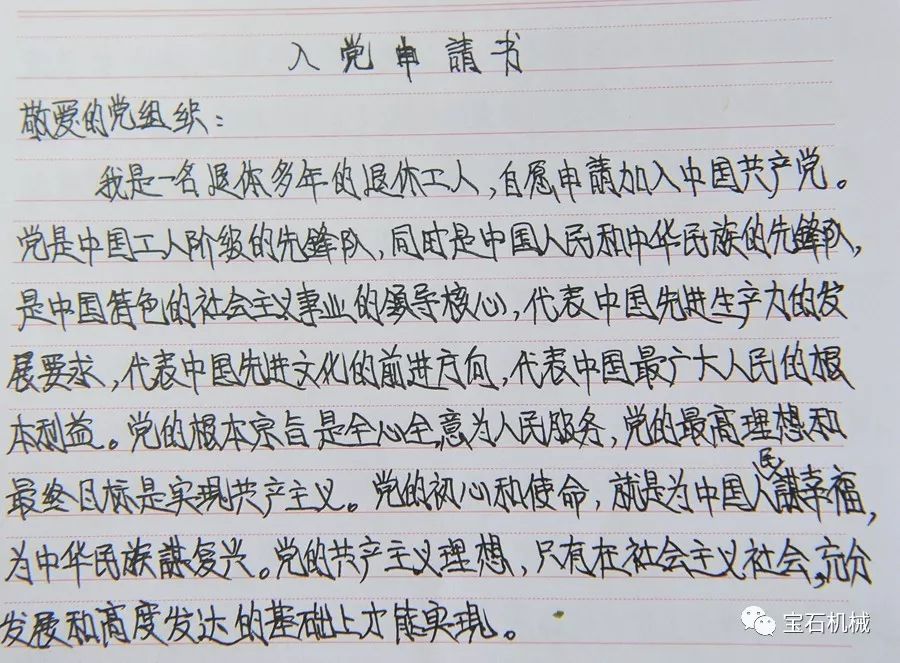 入党申請书
敬爱的党组织：
我是一名退休多年的退休工人，自愿申請加入中国共产党。
党是中国工人阶级的先鋒队，同时是中国人民和中华民族的先鋒队，
是中国特色的社会主义事业的领导核心，代表中国先进生产力的发
展要求，代表中国先进文化的前进方向，代表中国最广大人民的根
本利益。党的根本宗旨是全心全意为人民服务，党的最高理想和
最终目标是实现共产主义。党的初心和使命，就是为中国人民謀幸福，
为中华民族謀复兴。党的共产主义理想，只有在社会主义社会充分
发展和高度发达的基础上才能实现。
宝石机械